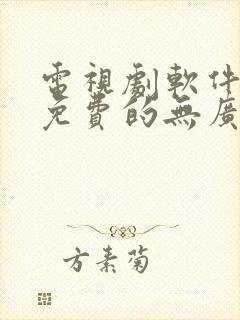 電視劇軟件
免費的無廣
方素菊